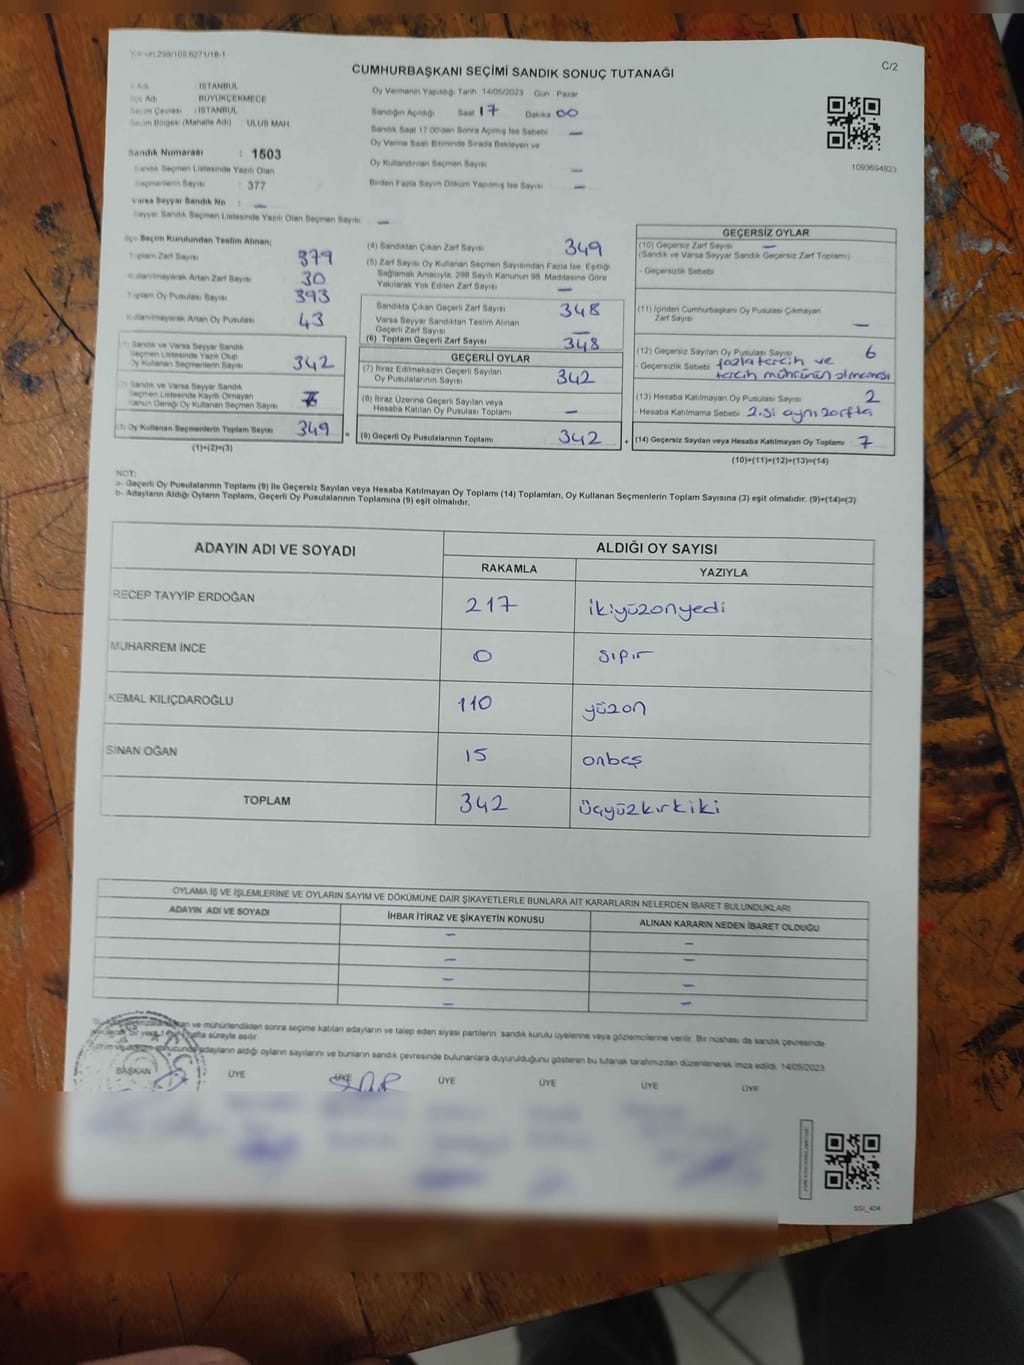 Kanun 298/105,6271/18-1
C/2
CUMHURBAŞKANI SEÇİMİ SANDIK SONUÇ TUTANAĞI
İl Adı : İSTANBUL
İlçe Adı : BÜYÜKÇEKMECE
Seçim Çevresi : İSTANBUL
Seçim Bölgesi (Mahalle Adı) : ULUS MAH.
Sandık Numarası : 1503
Sandık Seçmen Listesinde Yazılı Olan
Seçmenlerin Sayısı : 377
Varsa Seyyar Sandık No : —
Seyyar Sandık Seçmen Listesinde Yazılı Olan Seçmen Sayısı —
Oy Vermenin Yapıldığı Tarih 14/05/2023 Gün : Pazar
Sandığın Açıldığı Saat 17 Dakika 00
Sandık Saat 17:00'den Sonra Açılmış İse Sebebi —
Oy Verme Saati Bitiminde Sırada Bekleyen ve
Oy Kullandırılan Seçmen Sayısı —
Birden Fazla Sayım Döküm Yapılmış İse Sayısı —
1093694823
İlçe Seçim Kurulundan Teslim Alınan;
Toplam Zarf Sayısı 379
Kullanılmayarak Artan Zarf Sayısı 30
Toplam Oy Pusulası Sayısı 393
Kullanılmayarak Artan Oy Pusulası 43
(1) Sandık ve Varsa Seyyar Sandık
Seçmen Listesinde Yazılı Olup
Oy Kullanan Seçmen Sayısı 342
(2) Sandık ve Varsa Seyyar Sandık
Seçmen Listesinde Kayıtlı Olmayan
Kanun Gereği Oy Kullanan Seçmen Sayısı 7
(3) Oy Kullanan Seçmenlerin Toplam Sayısı 349 =
(1)+(2)=(3)
(4) Sandıktan Çıkan Zarf Sayısı 349
(5) Zarf Sayısı Oy Kullanan Seçmen Sayısından Fazla İse, Eşitliği
Sağlamak Amacıyla, 298 Sayılı Kanunun 98. Maddesine Göre
Yakılarak Yok Edilen Zarf Sayısı —
Sandıkta Çıkan Geçerli Zarf Sayısı 348
Varsa Seyyar Sandıktan Teslim Alınan
Geçerli Zarf Sayısı —
(6) Toplam Geçerli Zarf Sayısı 348
GEÇERLİ OYLAR
(7) İtiraz Edilmeksizin Geçerli Sayılan
Oy Pusulalarının Sayısı 342
(8) İtiraz Üzerine Geçerli Sayılan veya
Hesaba Katılan Oy Pusulası Toplamı —
(9) Geçerli Oy Pusulalarının Toplamı 342 +
GEÇERSİZ OYLAR
(10) Geçersiz Zarf Sayısı —
(Sandık ve Varsa Seyyar Sandık Geçersiz Zarf Toplamı)
- Geçersizlik Sebebi
(11) İçinden Cumhurbaşkanı Oy Pusulası Çıkmayan
Zarf Sayısı —
(12) Geçersiz Sayılan Oy Pusulası Sayısı 6
- Geçersizlik Sebebi fazla tercih ve
tercih mührünün olmaması
(13) Hesaba Katılmayan Oy Pusulası Sayısı 2
- Hesaba Katılmama Sebebi 2.si aynı zarfta
(14) Geçersiz Sayılan veya Hesaba Katılmayan Oy Toplamı 7
(10)+(11)+(12)+(13)=(14)
NOT:
a- Geçerli Oy Pusulalarının Toplamı (9) ile Geçersiz Sayılan veya Hesaba Katılmayan Oy Toplamı (14) Toplamları, Oy Kullanan Seçmenlerin Toplam Sayısına (3) eşit olmalıdır. (9)+(14)=(3)
b- Adayların Aldığı Oyların Toplamı, Geçerli Oy Pusulalarının Toplamına (9) eşit olmalıdır.
ADAYIN ADI VE SOYADI
ALDIĞI OY SAYISI
RAKAMLA YAZIYLA
RECEP TAYYİP ERDOĞAN 217 ikiyüzonyedi
MUHARREM İNCE 0 sıfır
KEMAL KILIÇDAROĞLU 110 yüzon
SİNAN OĞAN 15 onbeş
TOPLAM 342 üçyüzkırkiki
OYLAMA İŞ VE İŞLEMLERİNE VE OYLARIN SAYIM VE DÖKÜMÜNE DAİR ŞİKAYETLERLE BUNLARA AİT KARARLARIN NELERDEN İBARET BULUNDUKLARI
ADAYIN ADI VE SOYADI İHBAR İTİRAZ VE ŞİKAYETİN KONUSU ALINAN KARARIN NEDEN İBARET OLDUĞU
— —
— —
— —
— —
ve mühürlendikten sonra seçime katılan adayların ve talep eden siyasi partilerin sandık kurulu üyelerine veya gözlemcilerine verilir. Bir nüshası da sandık çevresinde
hafta süreyle asılır.
adayların aldığı oyların sayılarını ve bunların sandık çevresinde bulunanlara duyurulduğunu gösteren bu tutanak tarafımızdan düzenlenerek imza edildi. 14/05/2023
BAŞKAN ÜYE ÜYE ÜYE ÜYE ÜYE ÜYE
SSİ_404